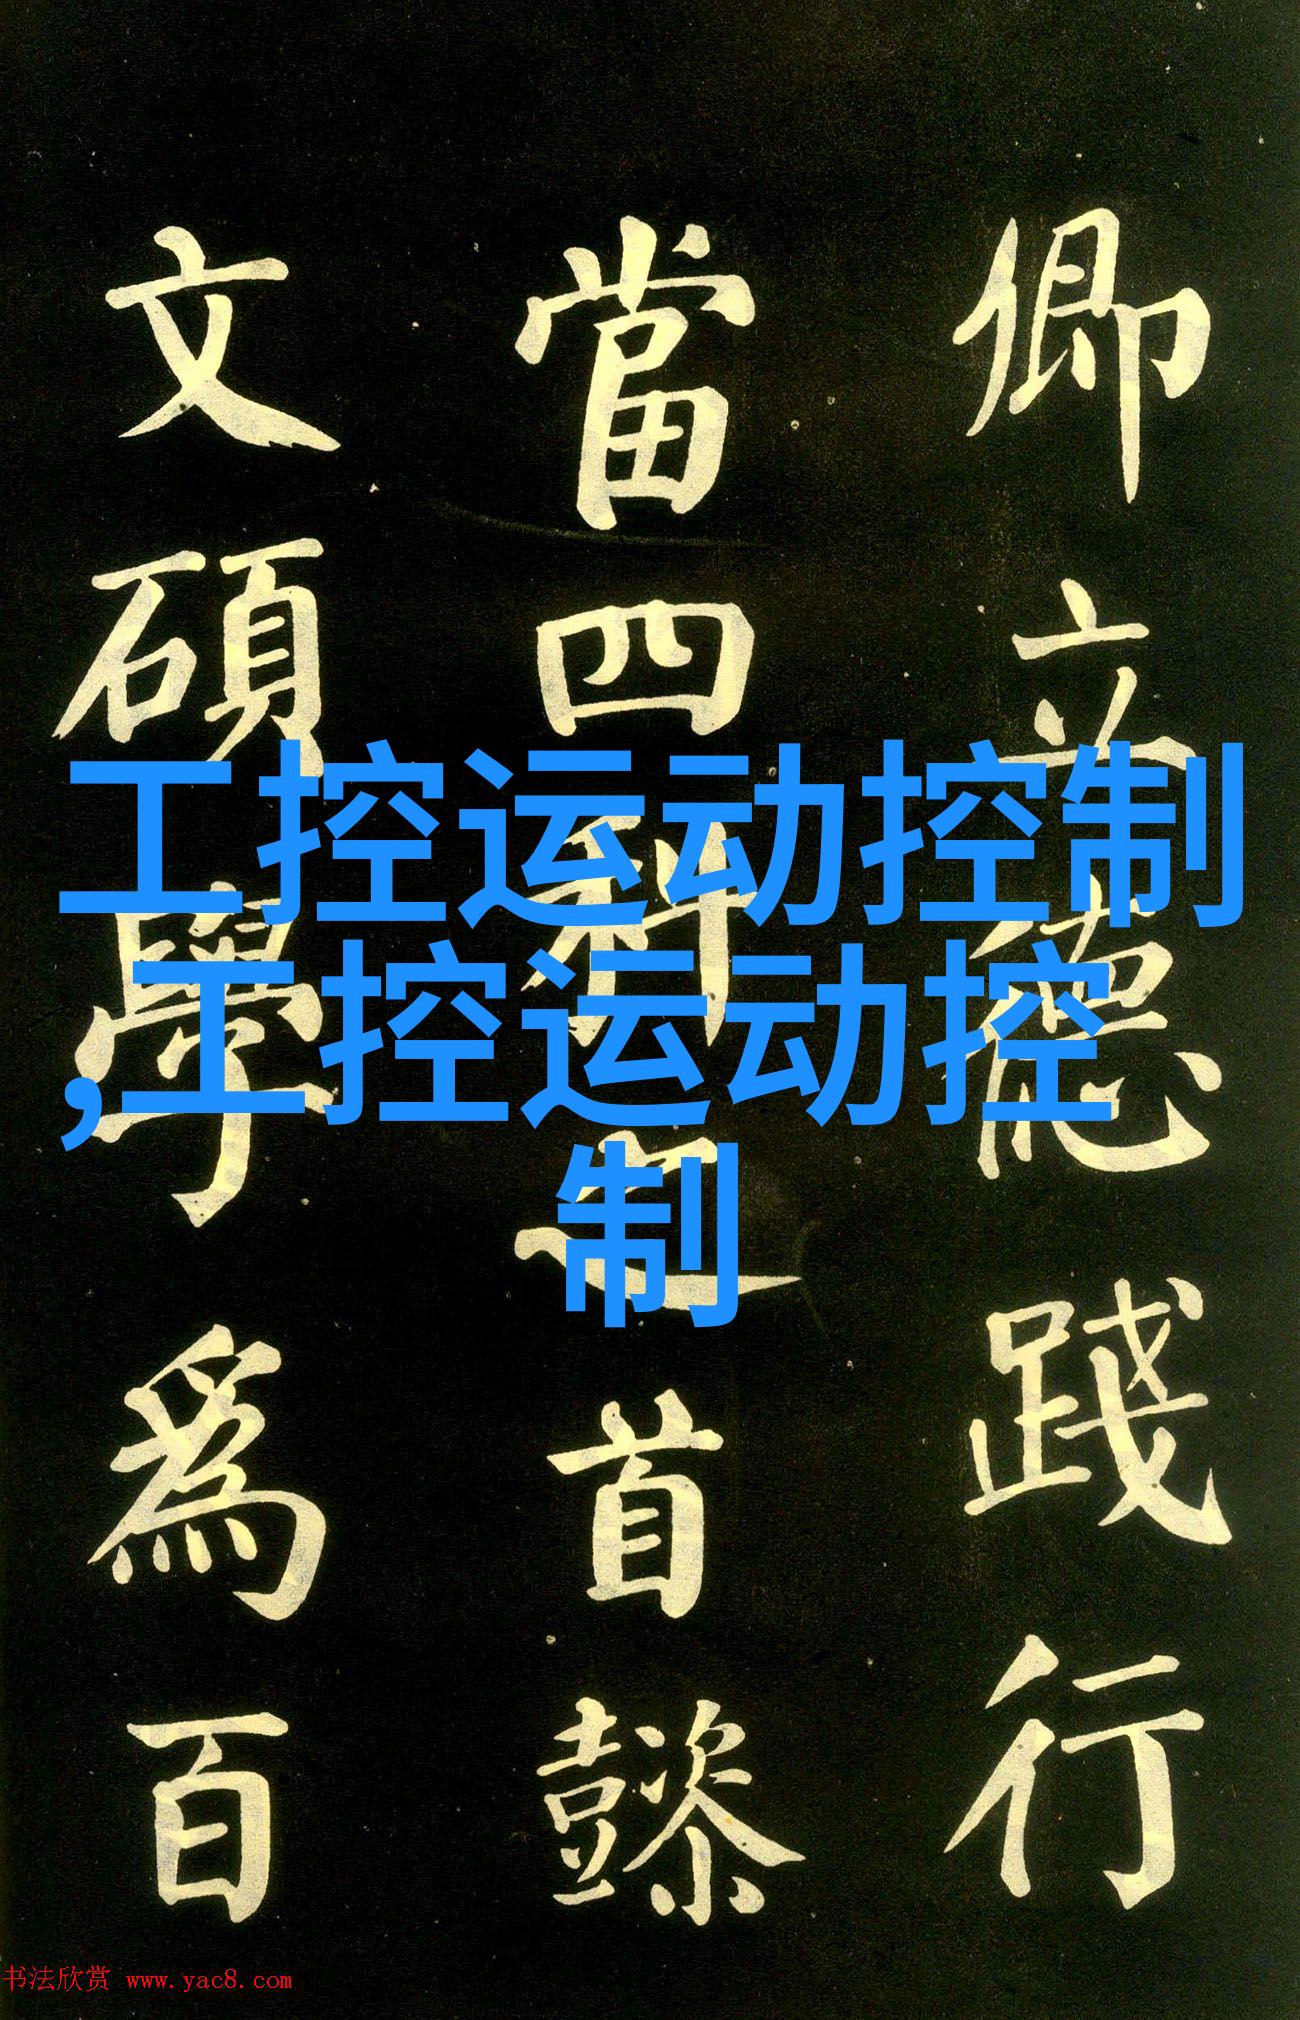 卿立德踐行
當四科之首懿
文碩學爲百
工控运动控制
,工控运动控
制
书法欣赏 www.yac8.com